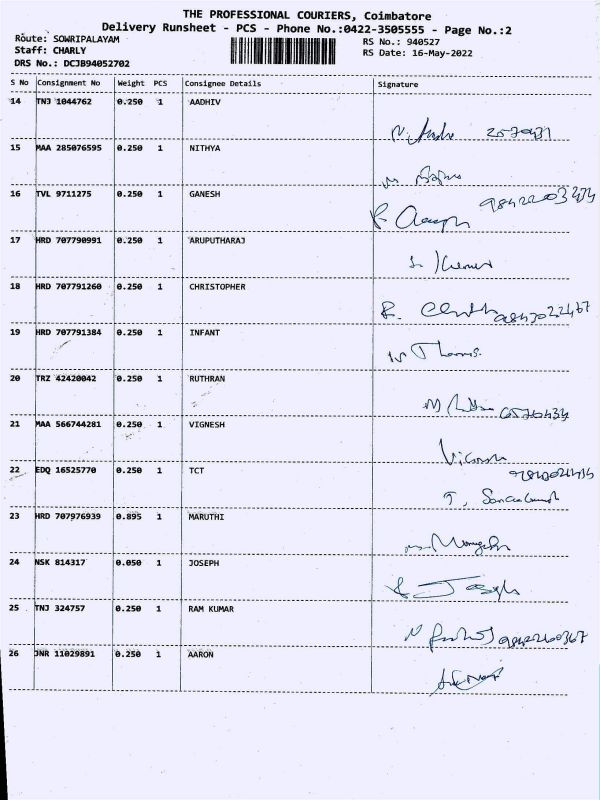 THE PROFESSIONAL COURIERS, Coimbatore
Delivery Runsheet - PCS - Phone No.:0422-3505555 - Page No.:2
Route: SOWRIPALAYAM
RS No.: 940527
Staff: CHARLY
RS Date: 16-May-2022
DRS No.: DCJB94052702
S No Consignment No Weight PCS Consignee Details Signature
14 TNJ 1044762 0.250 1 AADHIV
15 MAA 285076595 0.250 1 NITHYA
16 TVL 9711275 0.250 1 GANESH
17 HRD 707790991 0.250 1 ARUPUTHARAJ
18 HRD 707791260 0.250 1 CHRISTOPHER
19 HRD 707791384 0.250 1 INFANT
Thomis.
20 TRZ 42420042 0.250 1 RUTHRAN
21 MAA 566744281 0.250 1 VIGNESH
22 EDQ 16525770 0.250 1 TCT
23 HRD 707976939 0.895 1 MARUTHI
24 NSK 814317 0.050 1 JOSEPH
25 TNJ 324757 0.250 1 RAM KUMAR
26 JNR 11029891 0.250 1 AARON